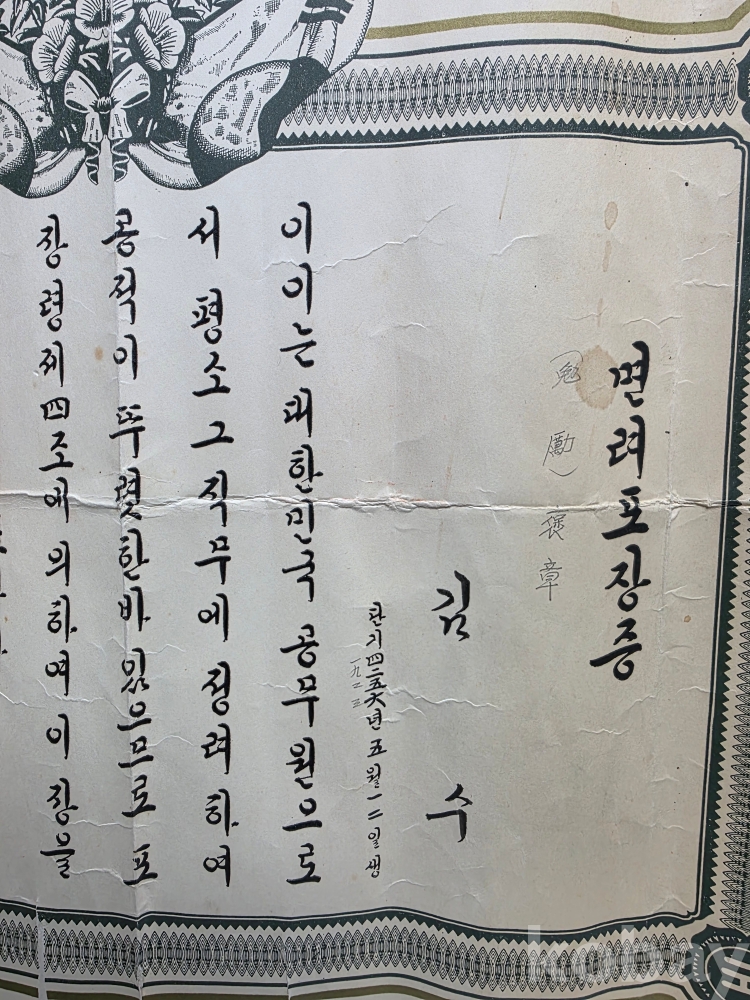 면려포장증
(勉勵)褒章
김 수
단기四二五六년 五월 一二일생
一九二三
이이는 대한민국 공무원으로
서 평소 그 직무에 정려하여
공적이 뚜렷한바 있으므로 포
장령제四조에 의하여 이 장을
kobay